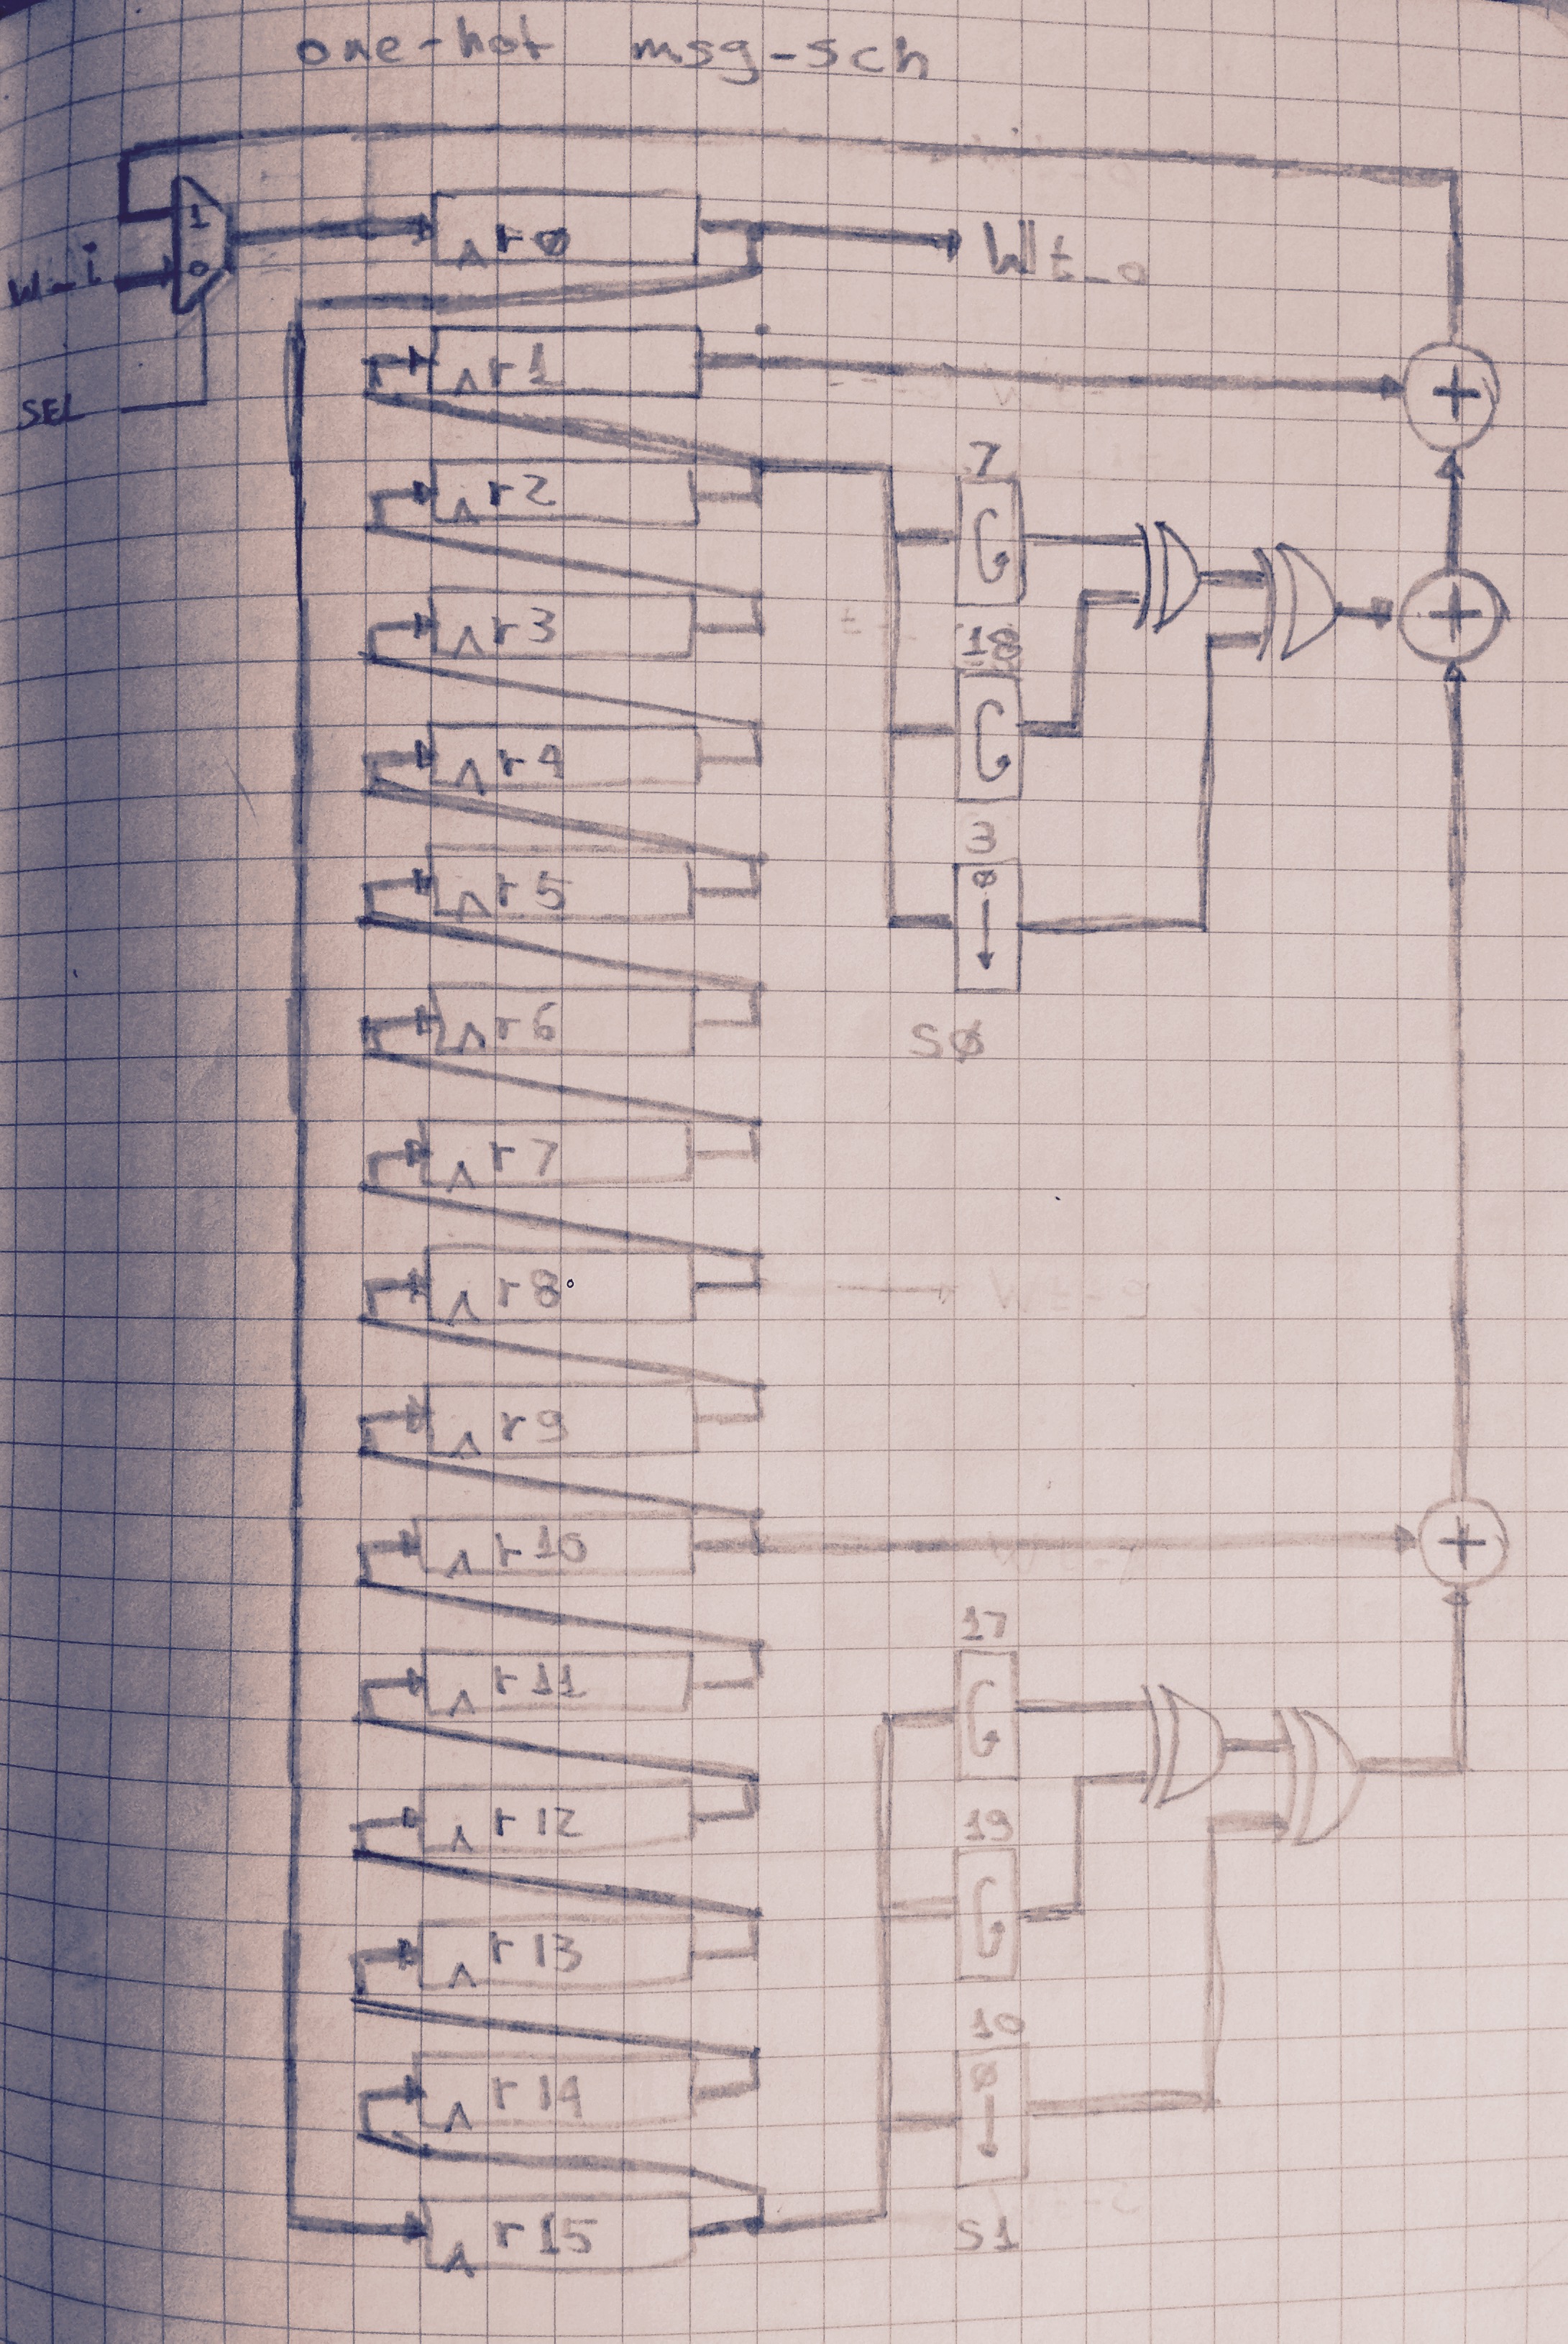 one-hot msg-sch
1
W_i
0
SEL
rø
Wt_o
r1
r2
r3
r4
r5
r6
r7
r8
r9
r10
r11
r12
r13
r14
r15
7
18
3
0
Sø
17
19
10
0
S1
+
+
+